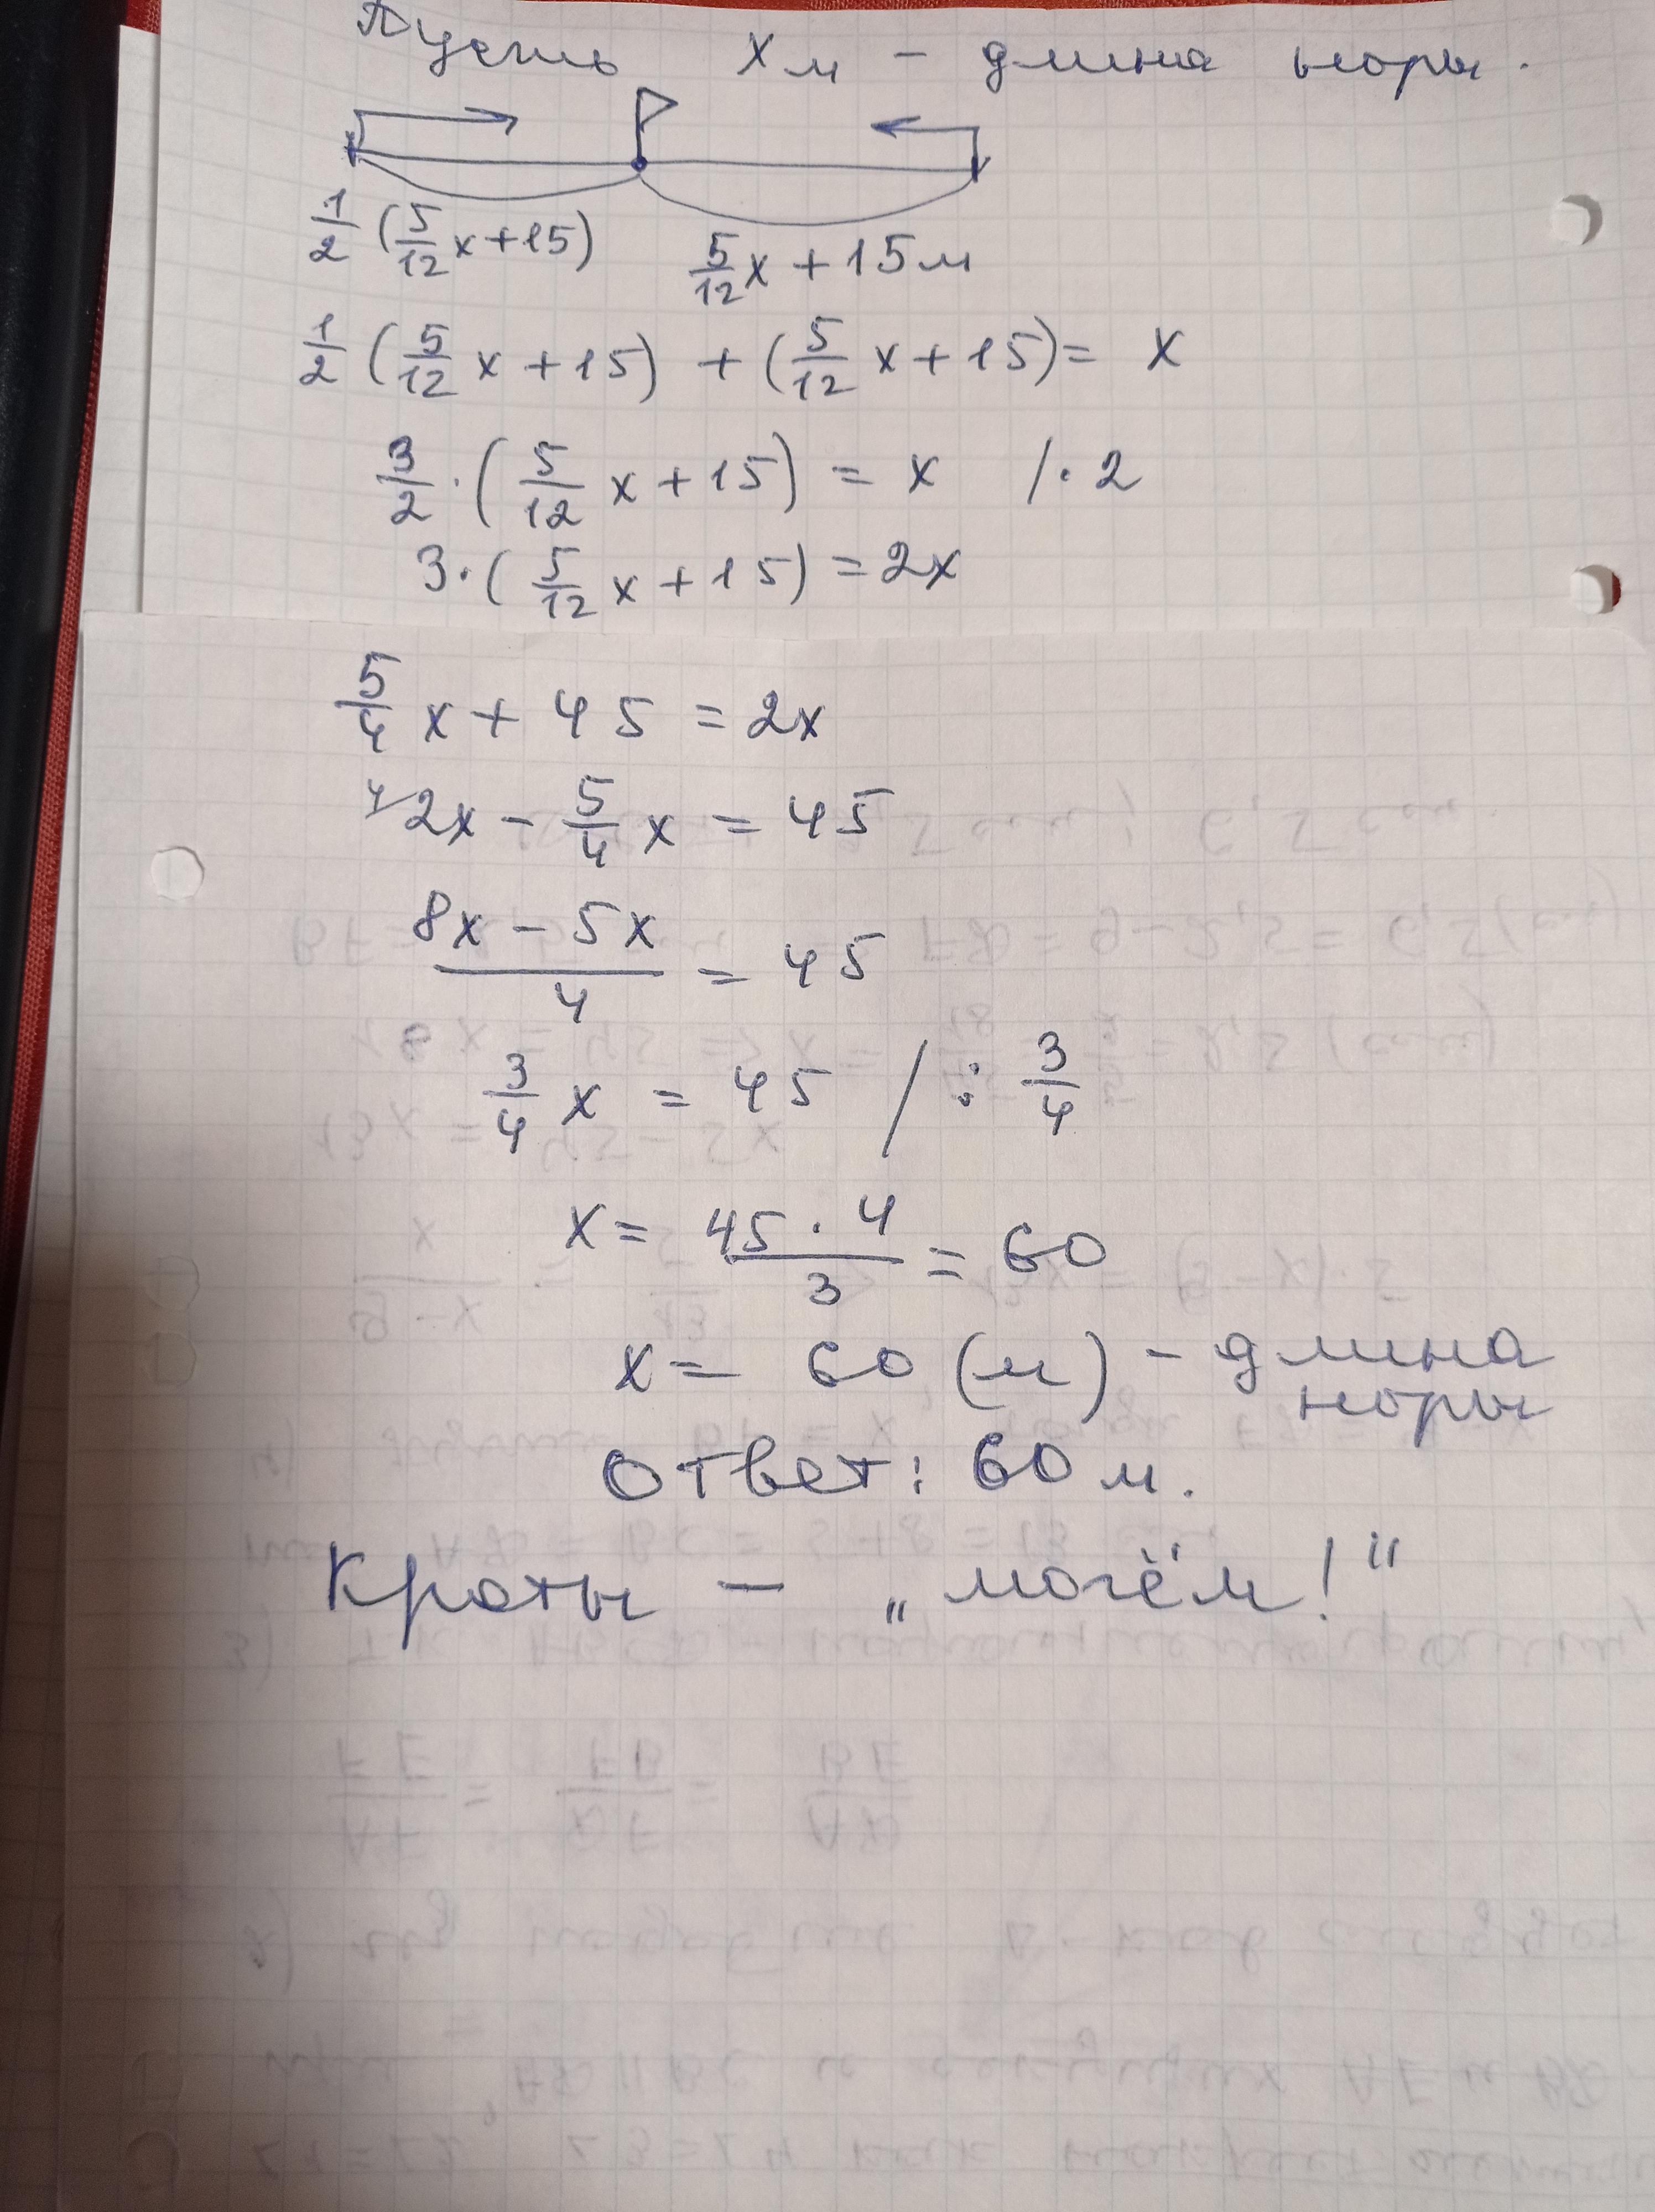 Пусть x м - длина норы.
1/2 (5/12 x + 15)
5/12 x + 15 м
1/2 (5/12 x + 15) + (5/12 x + 15) = x
3/2 · (5/12 x + 15) = x /· 2
3 · (5/12 x + 15) = 2x
5/4 x + 45 = 2x
4/ 2x - 5/4 x = 45
(8x - 5x)/4 = 45
3/4 x = 45 / : 3/4
x = (45 · 4)/3 = 60
x = 60 (м) - длина
норы
Ответ: 60 м.
Кроты - „могём!“